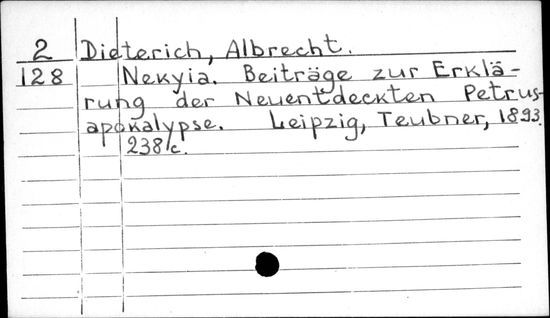 2 Dieterich, Albrecht.
128 Nekyia. Beiträge zur Erklä-
rung der Neuentdeckten Petrus-
apokalypse. Leipzig, Teubner, 1893.
238 c.